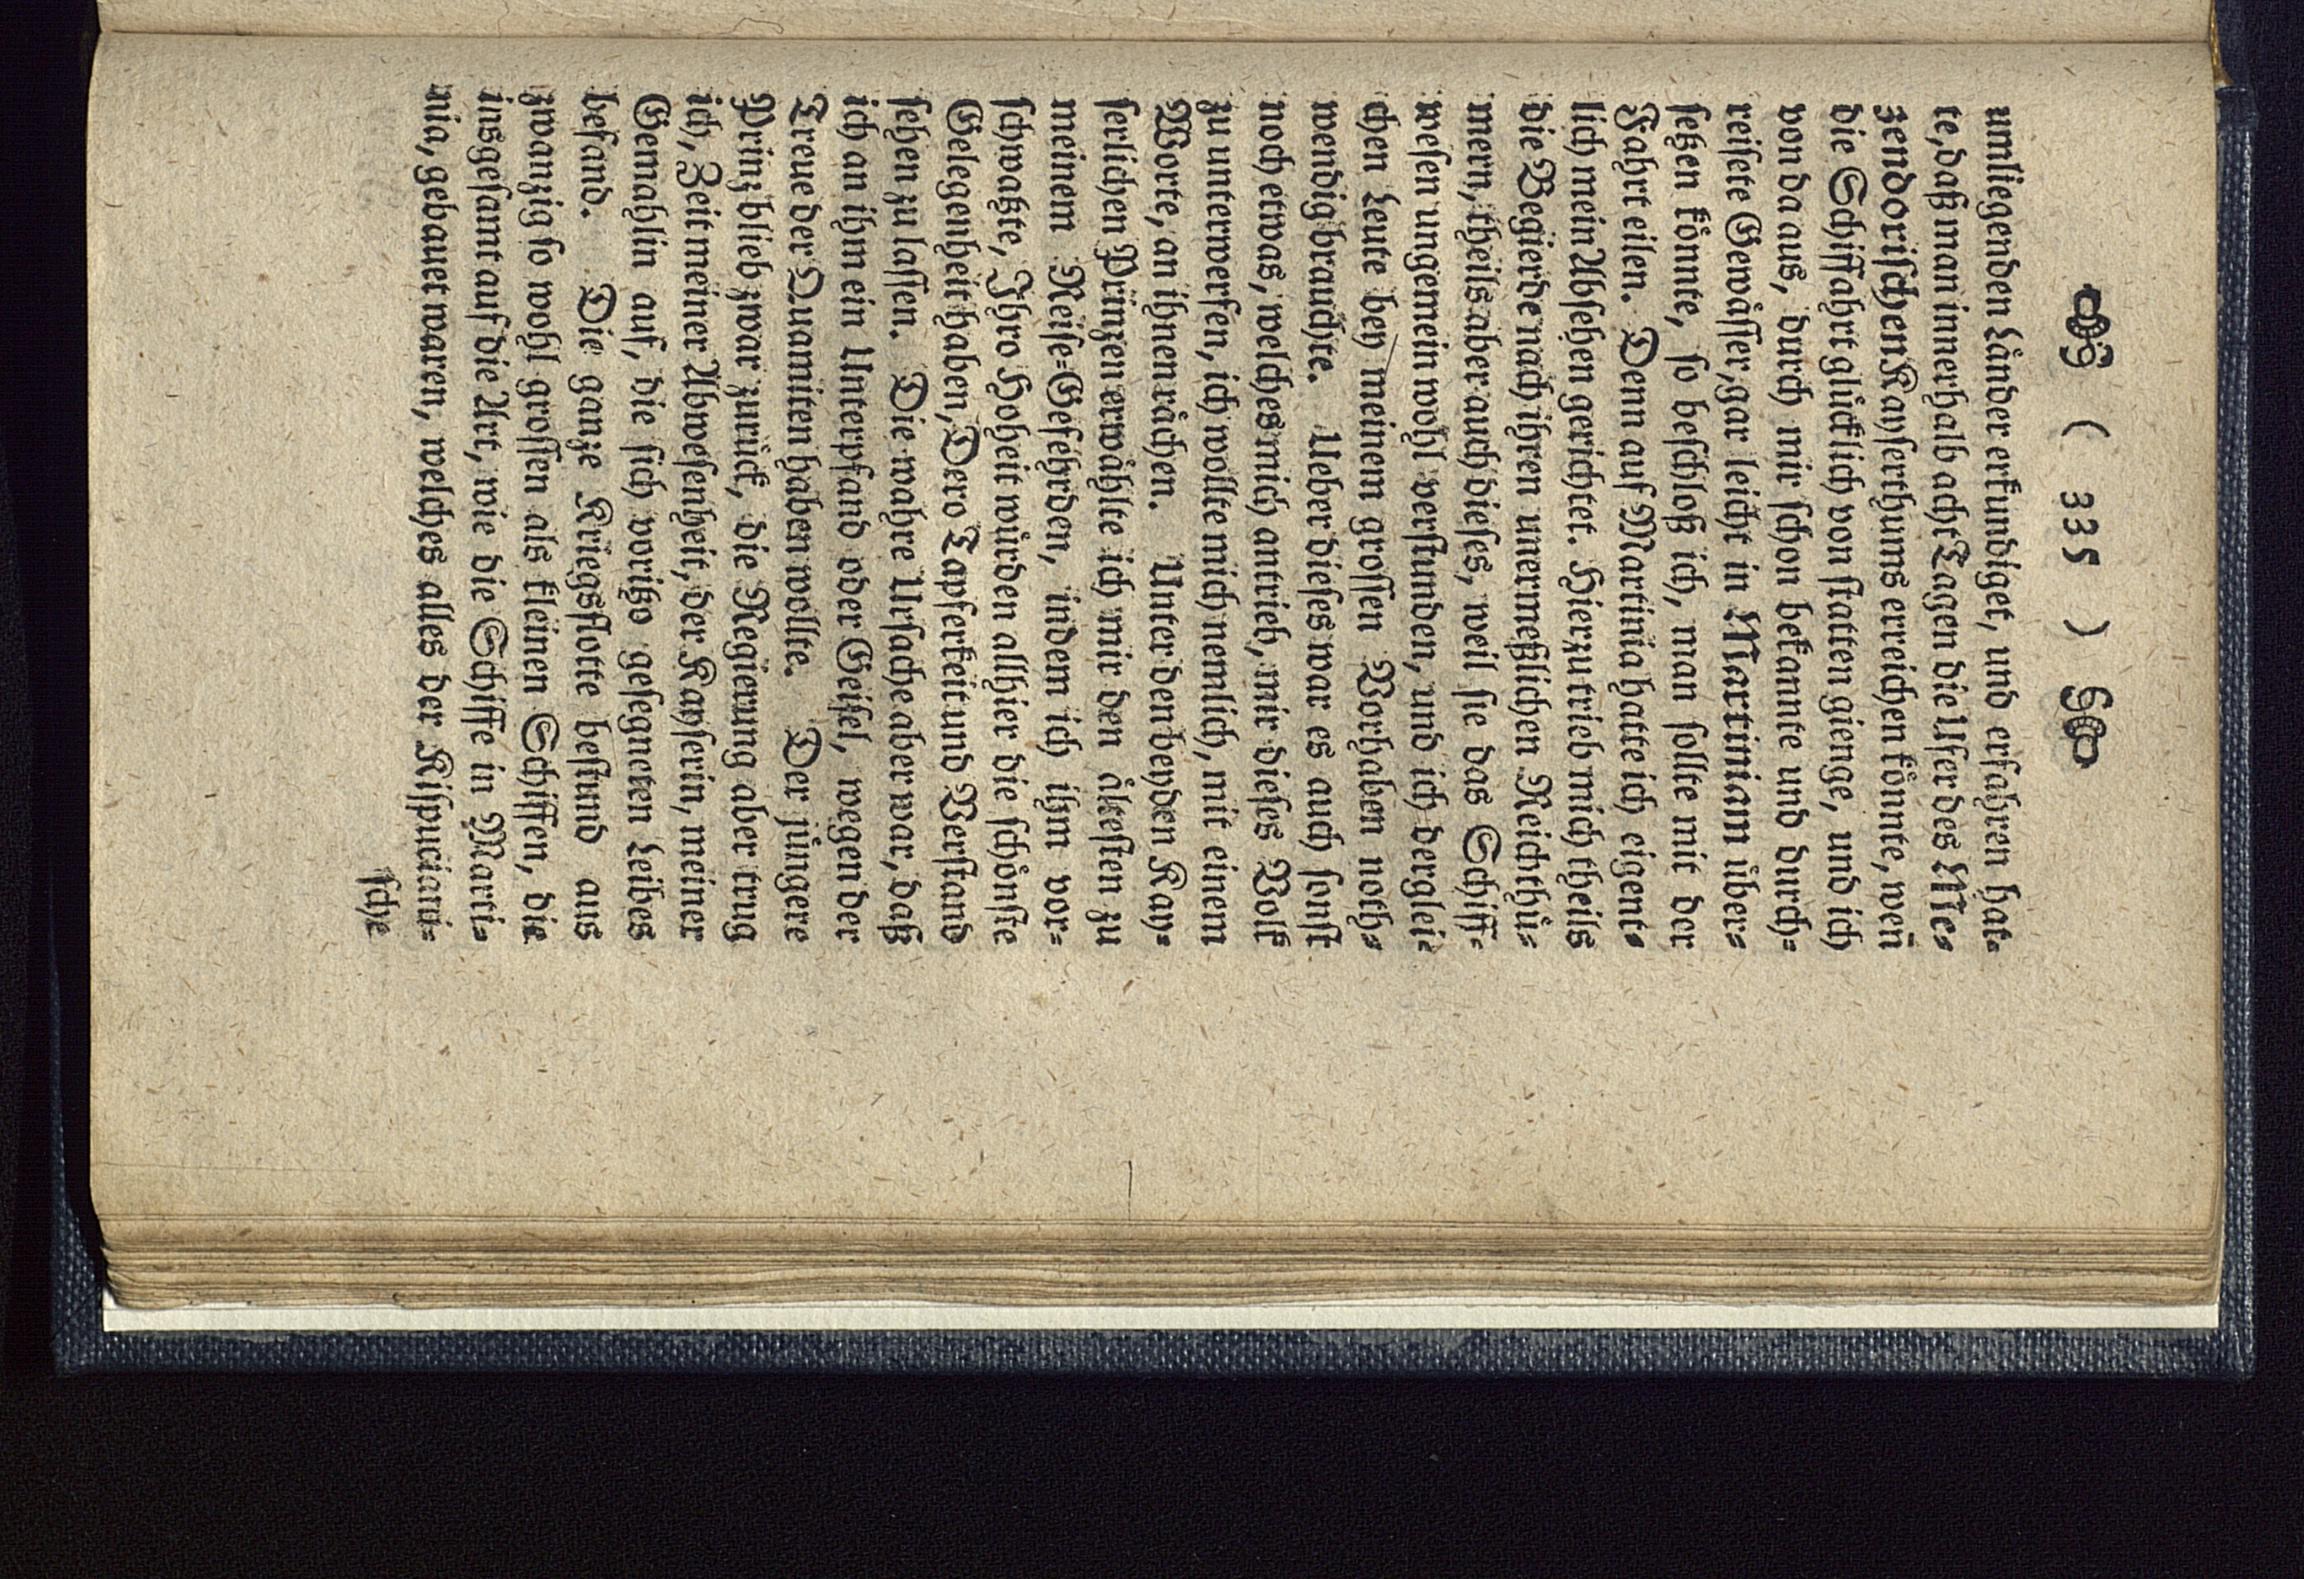 ( 335 )
umliegenden Länder erkundiget, und erfahren hat-
te, daß man innerhalb acht Tagen die Ufer des Me-
zendorischen Kayserthums erreichen könnte, weñ
die Schiffahrt glücklich von statten gienge, und ich
von da aus, durch mir schon bekannte und durch-
reisete Gewässer, gar leicht in Martiniam über-
setzen könnte, so beschloß ich, man sollte mit der
Fahrt eilen. Denn auf Martinia hatte ich eigent-
lich mein Absehen gerichtet. Hierzu trieb mich theils
die Begierde nach ihren unermeßlichen Reichthü-
mern, theils aber auch dieses, weil sie das Schiff-
wesen ungemein wohl verstunden, und ich derglei-
chen Leute bey meinem grossen Vorhaben noth-
wendig brauchte. Ueber dieses war es auch sonst
noch etwas, welches mich antrieb, mir dieses Volk
zu unterwerfen, ich wollte mich nemlich, mit einem
Worte, an ihnen rächen. Unter den beyden Kay-
serlichen Prinzen erwählte ich mir den ältesten zu
meinem Reise-Gefehrden, indem ich ihm vor-
schwatzte, Ihro Hoheit würden allhier die schönste
Gelegenheit haben, Dero Tapferkeit und Verstand
sehen zu lassen. Die wahre Ursache aber war, daß
ich an ihm ein Unterpfand oder Geisel, wegen der
Treue der Quamiten haben wollte. Der jüngere
Prinz blieb zwar zurück, die Regierung aber trug
ich, Zeit meiner Abwesenheit, der Kayserin, meiner
Gemahlin auf, die sich voritzo gesegneten Leibes
befand. Die ganze Kriegsflotte bestund aus
zwanzig so wohl grossen als kleinen Schiffen, die
insgesamt auf die Art, wie die Schiffe in Marti-
nia, gebauet waren, welches alles der Kispuciani-
sche